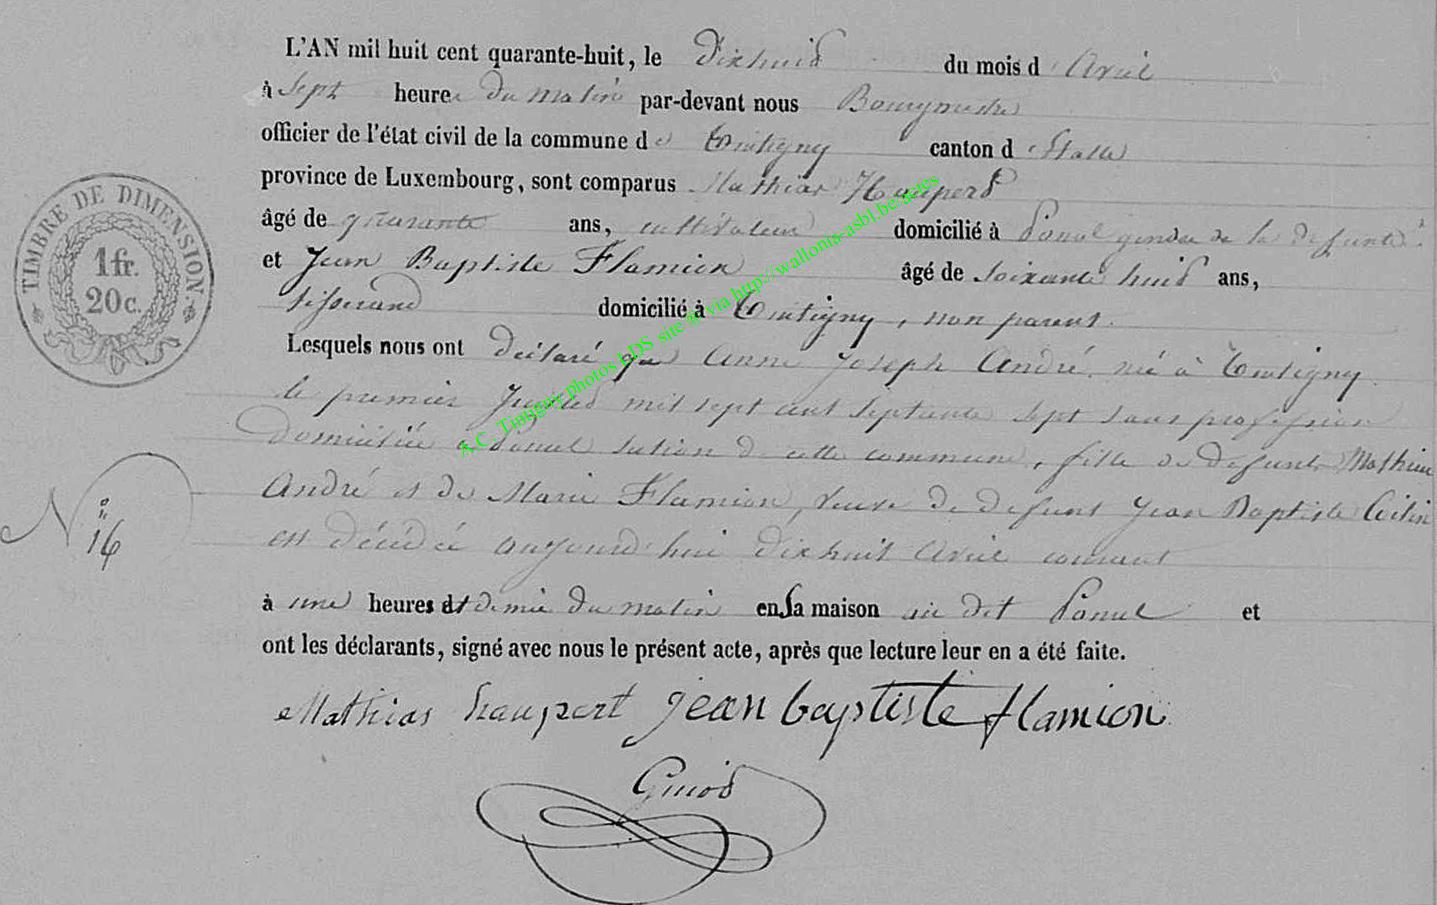 L'AN mil huit cent quarante-huit, le dixhuit du mois d'Avril
à Sept heures du matin par-devant nous Bourgmestre
officier de l'état civil de la commune de Tintigny canton d'Etalle
province de Luxembourg, sont comparus Mathias Haupert
âgé de quarante ans, cultivateur domicilié à Ponsel gendre de la defunte
et Jean Baptiste Flamion âgé de soixante huit ans,
tisserand domicilié à Tintigny, non parent
Lesquels nous ont déclaré que Anne Joseph André, née à Tintigny
le premier mil sept cent septante sept sans profession
domiciliée à section de cette commune, fille de defunts Mathieu
André et de Marie Flamion, veuve de defunt Jean Baptiste
est décédée aujourd'hui dixhuit Avril courant
à une heures et demie du matin en sa maison au dit et
ont les déclarants, signé avec nous le présent acte, après que lecture leur en a été faite.
Mathias haupert jean baptiste flamion
Guiot
N° 16
TIMBRE DE DIMENSION
1 fr.
20 c.
A.C. Tintigny photos LDS site @ via http://wallonia-asbl.be/actes